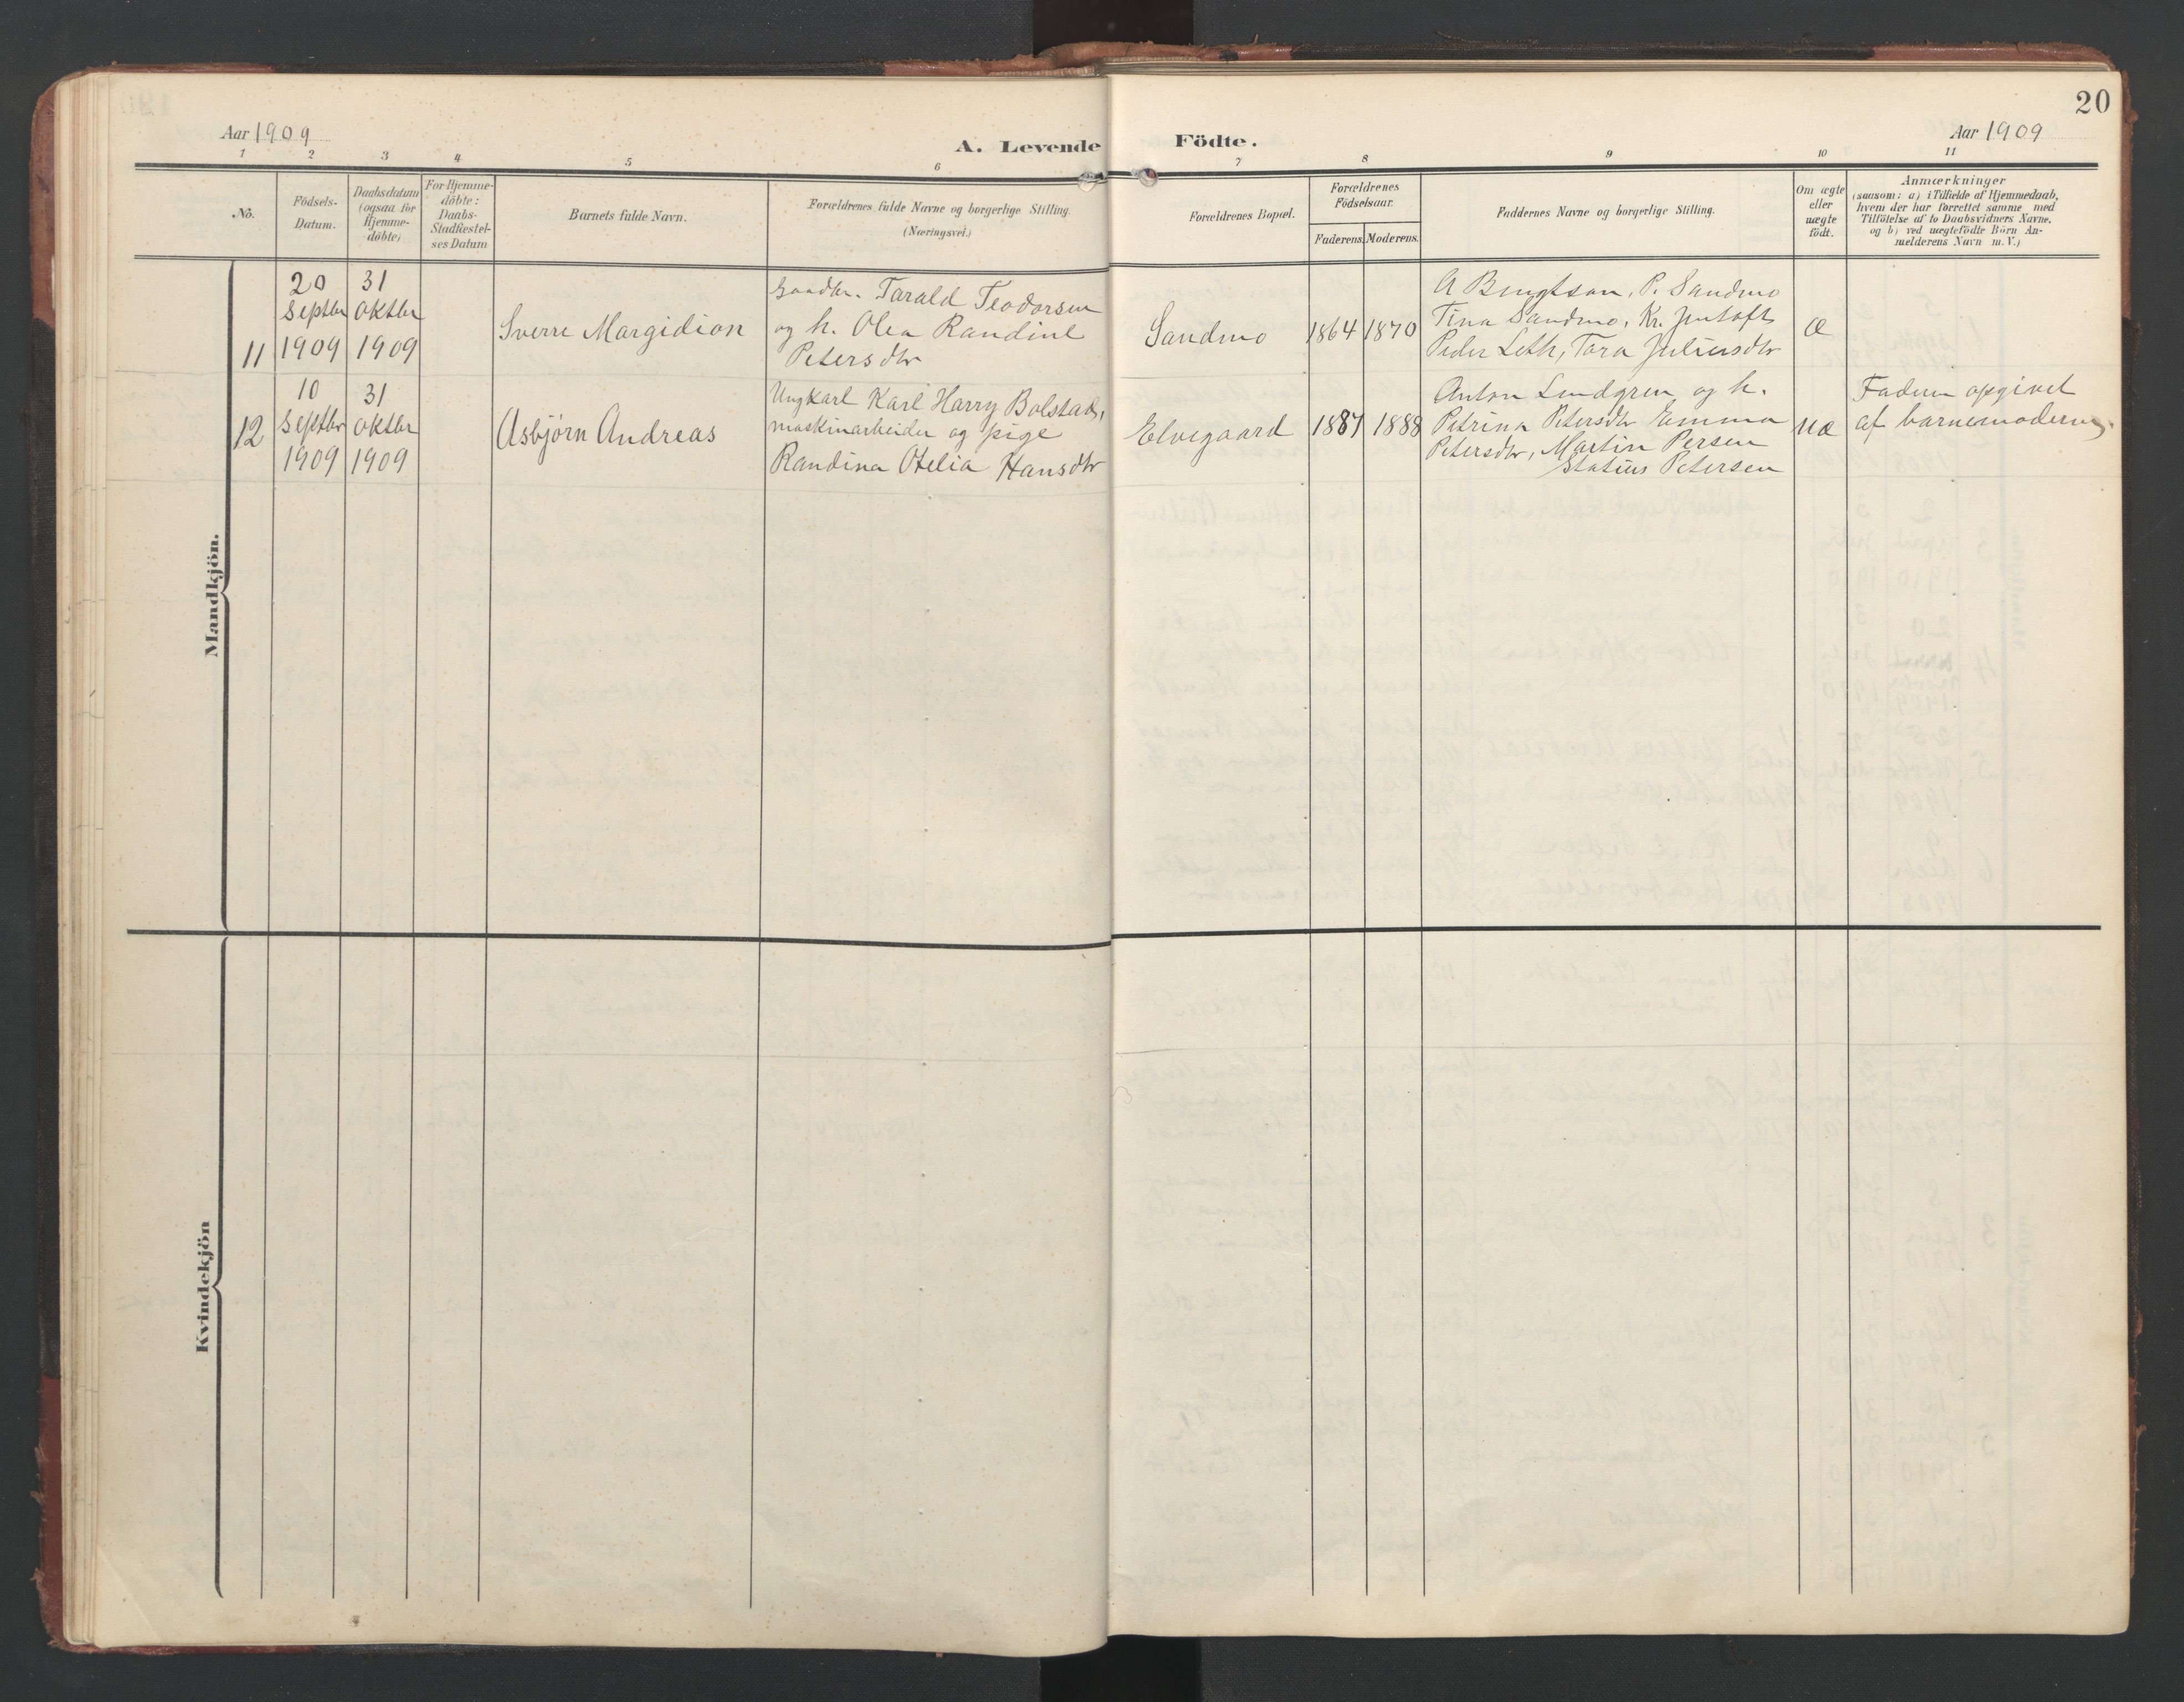 20
Aar 1909
A. Levende Födte.
Aar 1909
1 2 3 4 5 6 7 8 9 10 11
No.
Födsels-
Datum.
Daabsdatum
(ogsaa for
Hjemme-
döbte)
For Hjemme-
döbte:
Daabs-
Stadfæstel-
ses Datum
Barnets fulde Navn.
Forældrenes fulde Navne og borgerlige Stilling.
(Næringsvei.)
Forældrenes Bopæl.
Forældrenes
Födselsaar.
Faderens. Moderens.
Faddernes Navne og borgerlige Stilling.
Om ægte
eller
uægte
födt.
Anmærkninger
(saasom: a) i Tilfælde af Hjemmedaab,
hvem der har forrettet samme med
Tilföielse af to Daabsvidners Navne.
og b) ved uægtefödte Börn An-
melderens Navn m. V.)
Mandkjön.
11
20
Septbr
1909
31
oktbr
1909
Sverre Margidion
Gaardbr. Tarald Teodorsen
og h. Olea Randine
Petersdtr
Sandmo
1864 1870
A Bengtson, P. Sandmo
Tina Sandmo, Kr.
Peder Leth, Tora Juliusdtr
Æ
12
10
Septbr
1909
31
oktbr
1909
Asbjørn Andreas
Ungkarl Karl Harry Bolstad,
maskinarbeider og pige
Randina Otelia Hansdtr
Elvegaard
1887 1888
Anton Lundgren og h.
Petrina Petersdtr Emma
Petersdtr, Martin Persen
Statius Petersen
uæ
Faderen opgivet
af barnemoderen
Kvindekjön